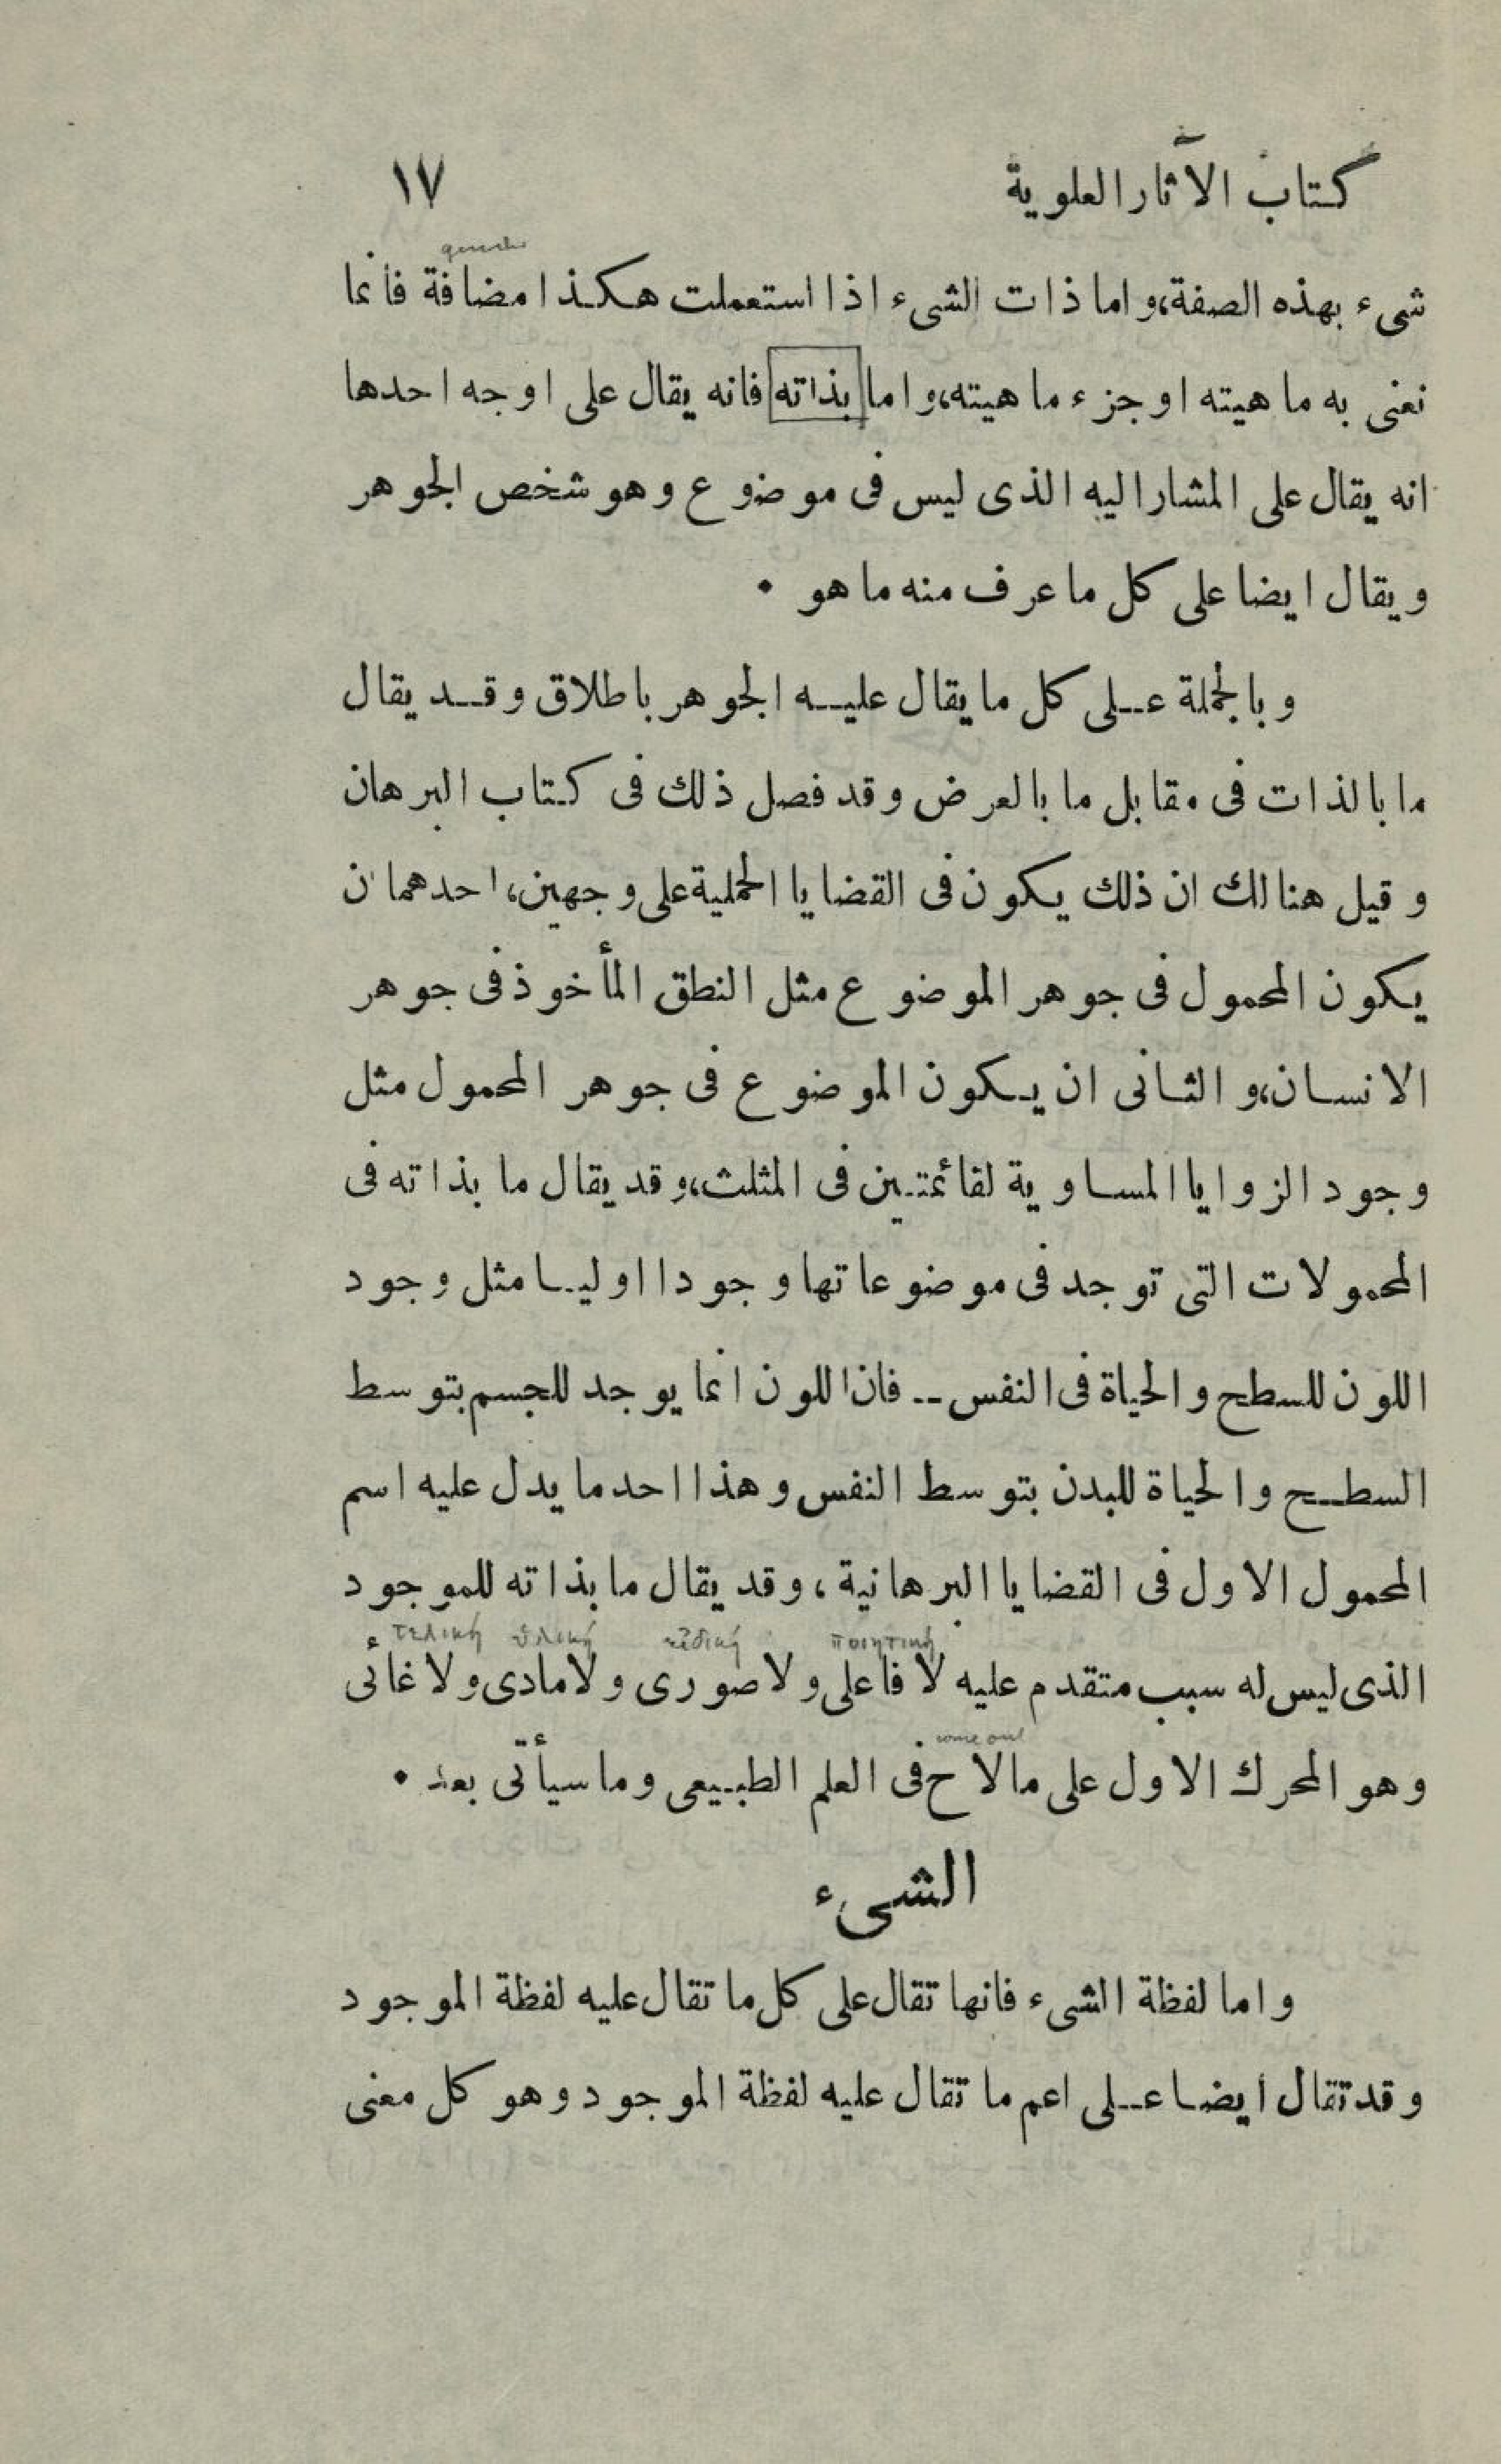 كتاب الآثار العلوية ١٧
شىء بهذه الصفة، واما ذات الشىء اذا استعملت هكذا مضافة فانما
نعنى به ماهيته او جزء ماهيته، واما بذاته فانه يقال على اوجه احدها
انه يقال على المشار اليه الذى ليس فى موضوع وهو شخص الجوهر
ويقال ايضا على كل ما عرف منه ما هو ٠
وبالجملة على كل ما يقال عليه الجوهر باطلاق وقد يقال
ما بالذات فى مقابل ما بالعرض وقد فصل ذلك فى كتاب البرهان
وقيل هنالك ان ذلك يكون فى القضايا الحملية على وجهين، احدهما ان
يكون المحمول فى جوهر الموضوع مثل النطق المأخوذ فى جوهر
الانسان، والثانى ان يكون الموضوع فى جوهر المحمول مثل
وجود الزوايا المساوية لقائمتين فى المثلث، وقد يقال ما بذاته فى
المحمولات التى توجد فى موضوعاتها وجودا اوليا مثل وجود
اللون للسطح والحياة فى النفس -- فان اللون انما يوجد للجسم بتوسط
السطح والحياة للبدن بتوسط النفس وهذا احد ما يدل عليه اسم
المحمول الاول فى القضايا البرهانية، وقد يقال ما بذاته للموجود
ποιητική εἰδική ὑλική τελική
الذى ليس له سبب متقدم عليه لا فاعلى ولا صورى ولا مادى ولا غائى
come out
وهو المحرك الاول على ما لاح فى العلم الطبيعى وما سيأتى بعد ٠
الشىء
واما لفظة الشىء فانها تقال على كل ما تقال عليه لفظة الموجود
وقد تقال ايضا على اعم ما تقال عليه لفظة الموجود وهو كل معنى